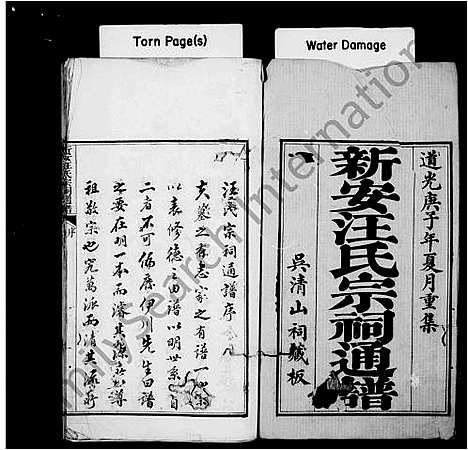 Torn Page(s)
Water Damage
道光庚子年夏月重集
新安汪氏宗祠通譜
吳清山祠藏板
汪氏宗祠通譜序
夫墓之有志家之有譜一以
以表修德之由譜以明世系之自
二者不可偏廢伊川先生曰譜
之要在明一本而濬其源
祖敬宗也究萬派而清其流
序
FamilySearch International